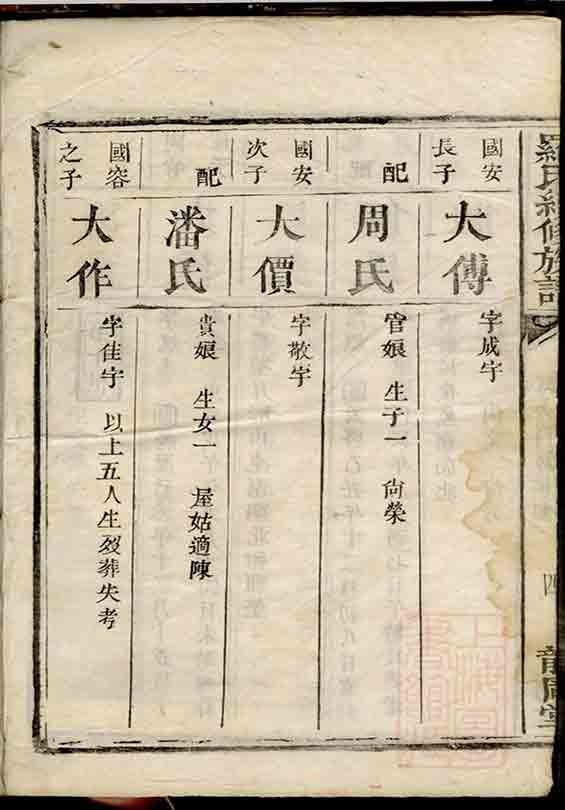 羅氏續修族譜
四
國安長子
大傅
字成宇
配
周氏
管娘 生子一 尚榮
國安次子
大價
字敬宇
配
潘氏
貴娘 生女一 屋姑適陳
國容之子
大作
字佳宇 以上五人生殁葬失考